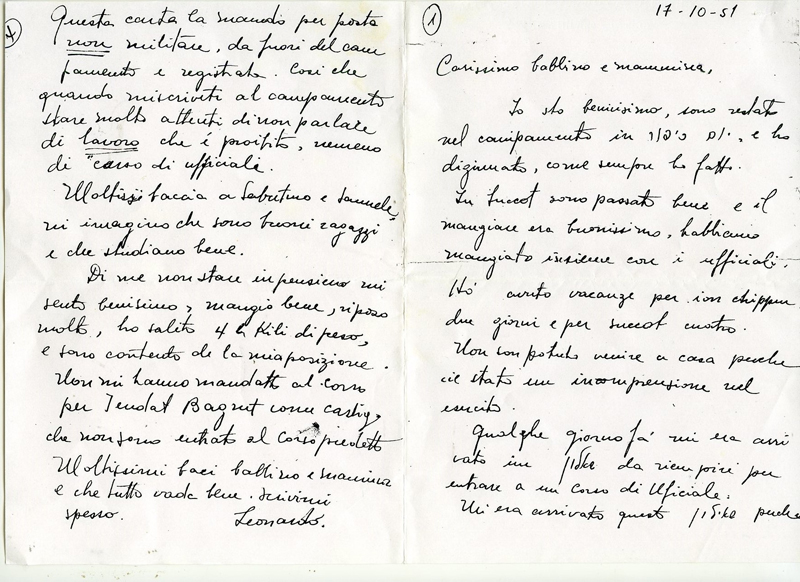 4
Questa carta la mando per posta
non militare, da fuori del cam
pamento e registrata. Cosi che
quando miscriviti al campamento
stare molto attenti di non parlare
di lavoro che é proibito, nemeno
di "corso di ufficiali.
Moltissi baccia a Sabatino e Samuele,
mi imagino che sono buoni ragazzi
e che studiano bene.
Di me non stare in pensiero mi
sento benisimo, mangio bene, riposo
molto, ho salito 4 Kili di peso,
e sono contento de la mia posizione.
Non mi hanno mandatto al Corso
per Teudat Bagrut come castigo
che non sono entrato al Corso predetto
Moltissimi baci babbino e mammina
e che tutto vada bene. Scrivimi
spesso. Leonardo.
1
17-10-51
Carissimo babbino e mammina,
Io sto benissimo, sono restato
nel campamento in יום כיפור, e ho
digiunato, come sempre ho fatto.
In Succot sono passato bene e il
mangiare era buonissimo, habbiamo
mangiato insieme con i ufficiali.
Hó avuto vacanze per iom chippur
due giorni e per succot cuatro.
Non son potuto venire a casa perche
cié stato un incomprensione nel
esercito.
Qualche giorno fá mi era arri
vato un שאלון da riempire per
entrare a un Corso di Uficiale.
Mi era arrivato questo שאלון perche